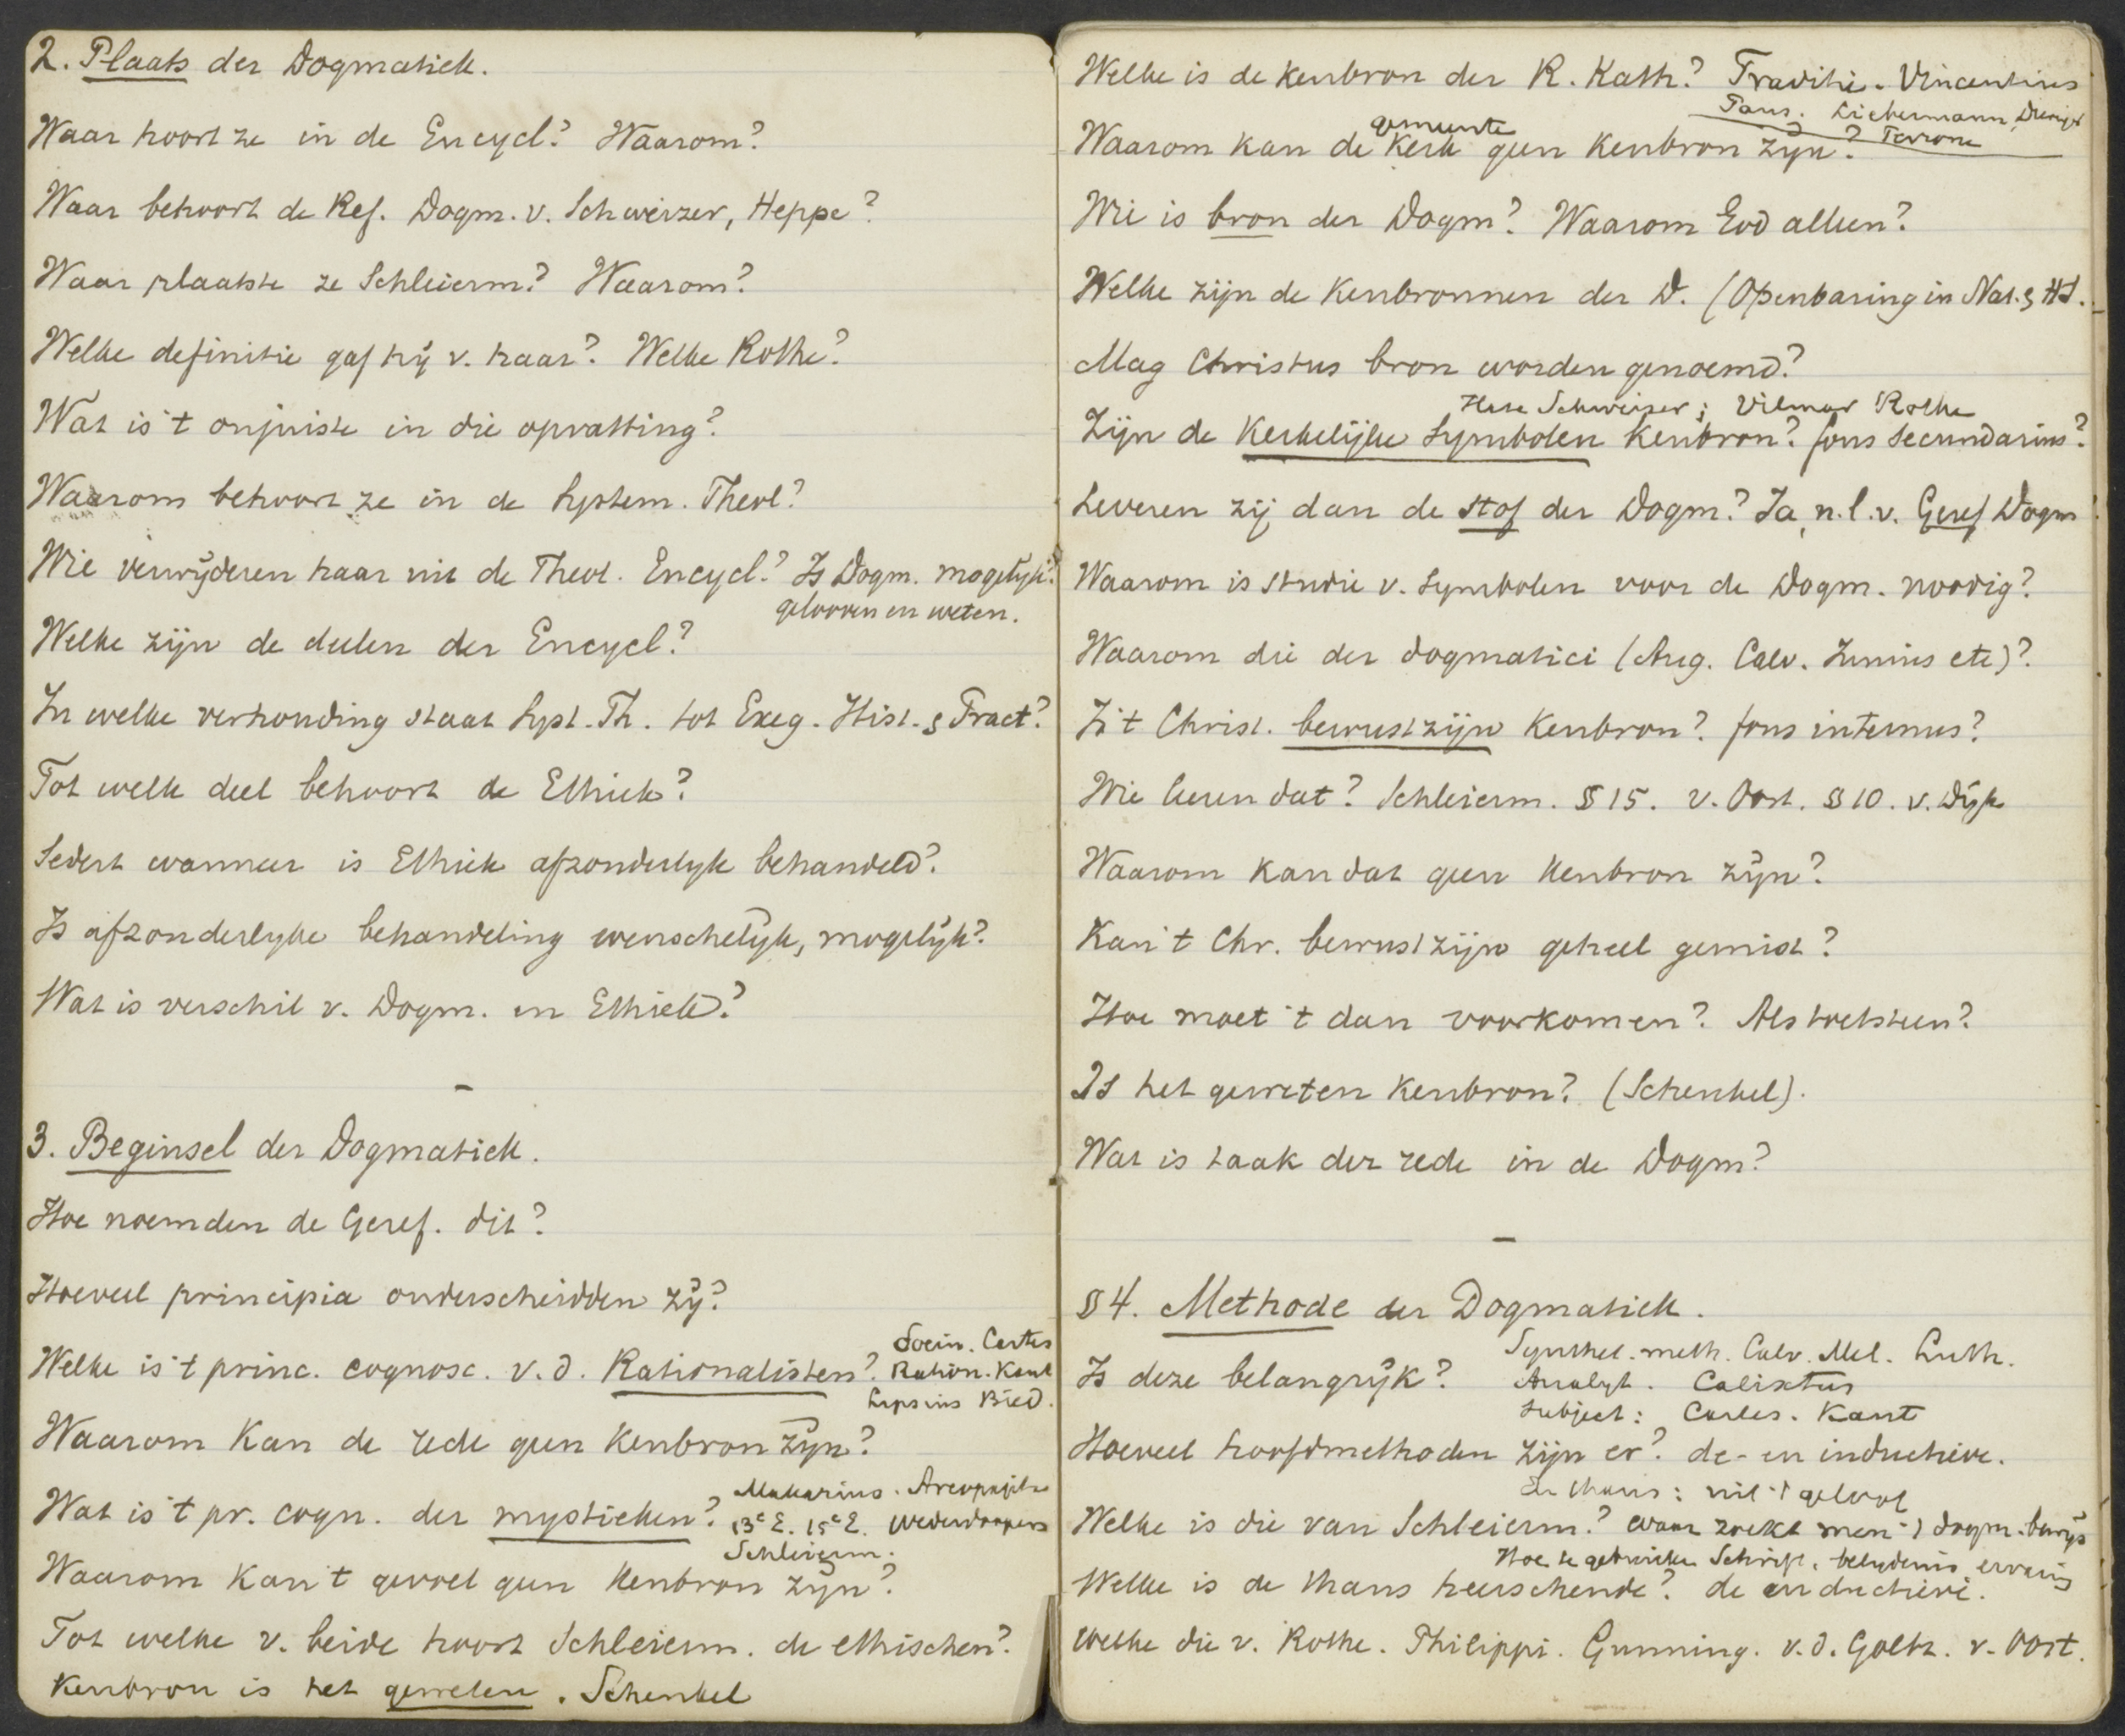 2. Plaats der Dogmatiek.
Waar hoort ze in de Encycl? Waarom?
Waar behoort de Ref. Dogm. v. Schweizer, Heppe?
Waar plaatste ze Schleierm? Waarom?
Welke definitie gaf hij v. haar? Welke Rothe?
Wat is 't onjuiste in die opvatting?
Waarom behoort ze in de System. Theol?
Wie verwijderen haar uit de Theol. Encycl.? Is Dogm. mogelijk?
gelooven en weten.
Welke zijn de deelen der Encycl?
In welke verhouding staat Syst. Th. tot Exeg. Hist. & Pract?
Tot welk deel behoort de Ethiek?
Sedert wanneer is Ethiek afzonderlijk behandeld?
Is afzonderlyke behandeling wenschelijk, mogelijk?
Wat is verschil v. Dogm. en Ethiek?
3. Beginsel der Dogmatiek.
Hoe noemden de Geref. dit?
Hoeveel principia onderscheidden zij?
Socin. Cartes
Welke is 't princ. cognosc. v. d. Rationalisten? Ration. Kant
Lipsius Bied.
Waarom kan de rede geen kenbron zijn?
Makarius. Areopagita
Wat is 't pr. cogn. der mystieken? 13e E. 15e E. Wederdoopers
Schleierm.
Waarom kan 't gevoel geen kenbron zijn?
Tot welke v. beide hoort Schleierm. de ethischen?
Kenbron is het geweten. Schenkel
Welke is de kenbron der R. Kath? Traditie. Vincentius
Paus. Liebermann, Perrone
gemeente
Waarom kan de Kerk geen kenbron zijn?
Wie is bron der Dogm? Waarom God alleen?
Welke zijn de kenbronnen der D. (Openbaring in Nat. & HS.
Mag Christus bron worden genoemd?
Hase Schweizer; Vilmar Rothe
Zijn de Kerkelijke Symbolen Kenbron? fons secundarius?
Leveren zij dan de stof der Dogm? Ja, n.l. v. Geref Dogm
Waarom is studie v. Symbolen voor de Dogm. noodig?
Waarom die der dogmatici (Aug. Calv. Junius etc)?
Is 't Christ. bewustzijn Kenbron? fons internus?
Wie leeren dat? Schleierm. § 15. v. Oost. § 10. v. Dijk
Waarom kan dat geen kenbron zijn?
Kan 't Chr. bewustzijn geheel gemist?
Hoe moet 't dan voorkomen? Als toetssteen?
Is het geweten Kenbron? (Schenkel).
Wat is taak der rede in de Dogm?
§ 4. Methode der Dogmatiek.
Synthet. meth. Calv. Mel. Luth.
Is deze belangrijk? Analyt. Calixtus
Subject: Cartes. Kant
Hoeveel hoofdmethoden zijn er? de- en inductieve.
thans: uit 't geloof
Welke is die van Schleierm.? waar zoekt men 't dogm. bewijs
Hoe te gebruiken Schrift, belydenis, ervaring
Welke is de thans heerschende? de inductieve.
Welke die v. Rothe. Philippi. Gunning. v.d. Goltz. v. Oost.